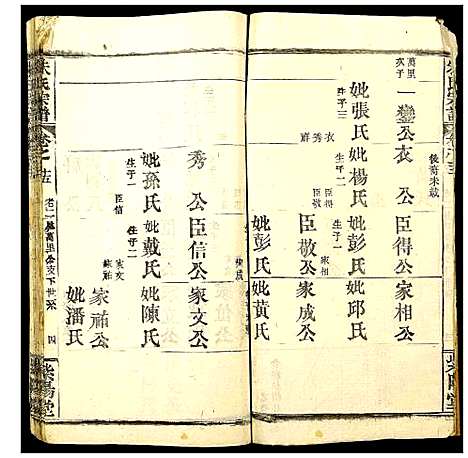 後裔未載
萬里
次子
一鑾公
衣公
臣得公
家相公
妣張氏
生子三
衣 秀 群
妣楊氏
生子二
臣得
臣敬
妣彭氏
生子一
家相
妣邱氏
臣敬公
家成公
妣彭氏
妣黃氏
家成
秀公
臣信公
家文公
妣孫氏
生子一
臣信
妣戴氏
生子二
家文
家祐
妣陳氏
家祐公
妣潘氏
朱氏宗譜
萬里公支下世系
四
紫陽堂